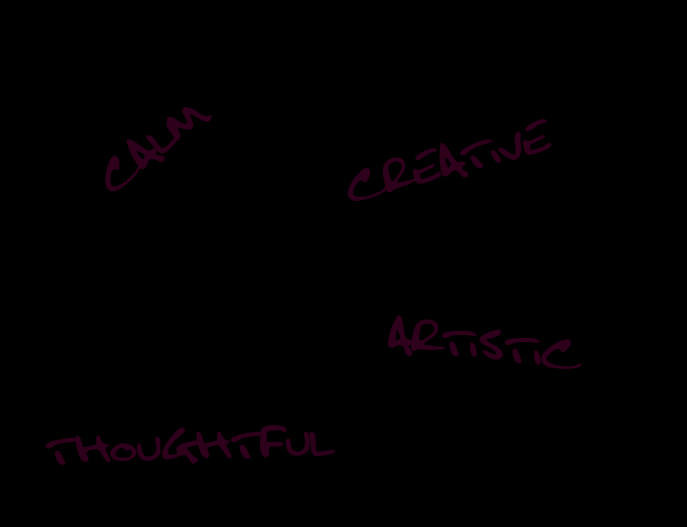 CALM
CREATIVE
ARTISTIC
THOUGHTFUL